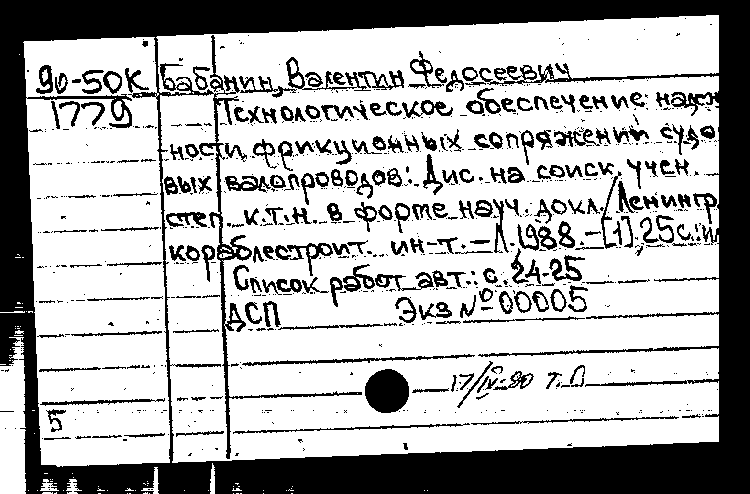 90-50К Бабанин, Валентин Федосеевич
1779 Технологическое обеспечение надеж
ности фрикционных сопряжений судо
вых валопроводов: Дис. на соиск. учен.
степ. к.т.н. в форме науч. докл./Ленингр.
кораблестроит. ин-т.-Л.1988.-[1],25с.:ил
Список работ авт.: с. 24-25
ДСП Экз №00005
17/IV-90 т.П
5